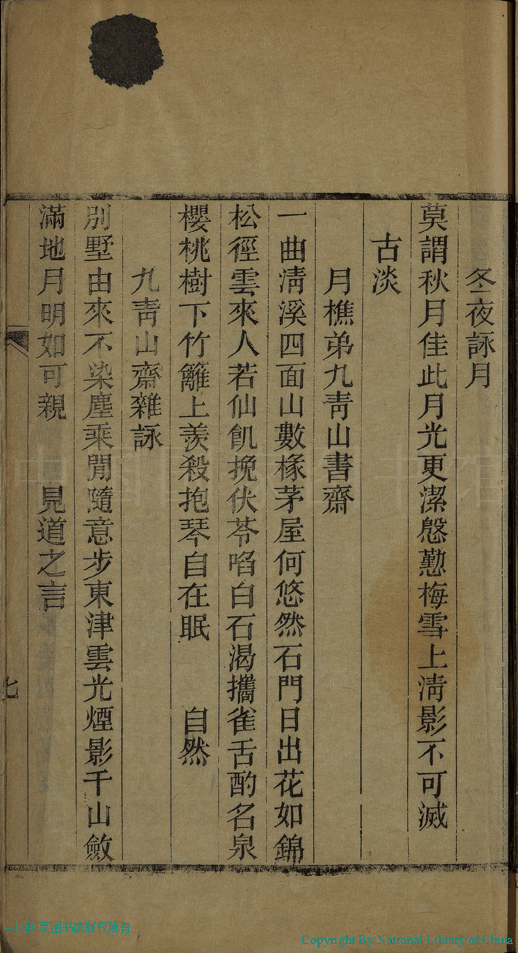 冬夜詠月
莫謂秋月佳此月光更潔慇懃梅雪上清影不可滅
古淡
月樵弟九青山書齋
一曲清溪四面山數椽茅屋何悠然石門日出花如錦
松徑雲來人若仙飢挽伏苓啗白石渴攜雀舌酌名泉
櫻桃樹下竹籬上羨殺抱琴自在眠 自然
九青山齋雜詠
別墅由來不染塵乘閒隨意步東津雲光煙影千山斂
滿地月明如可親 見道之言
七
Copyright By National Library of China